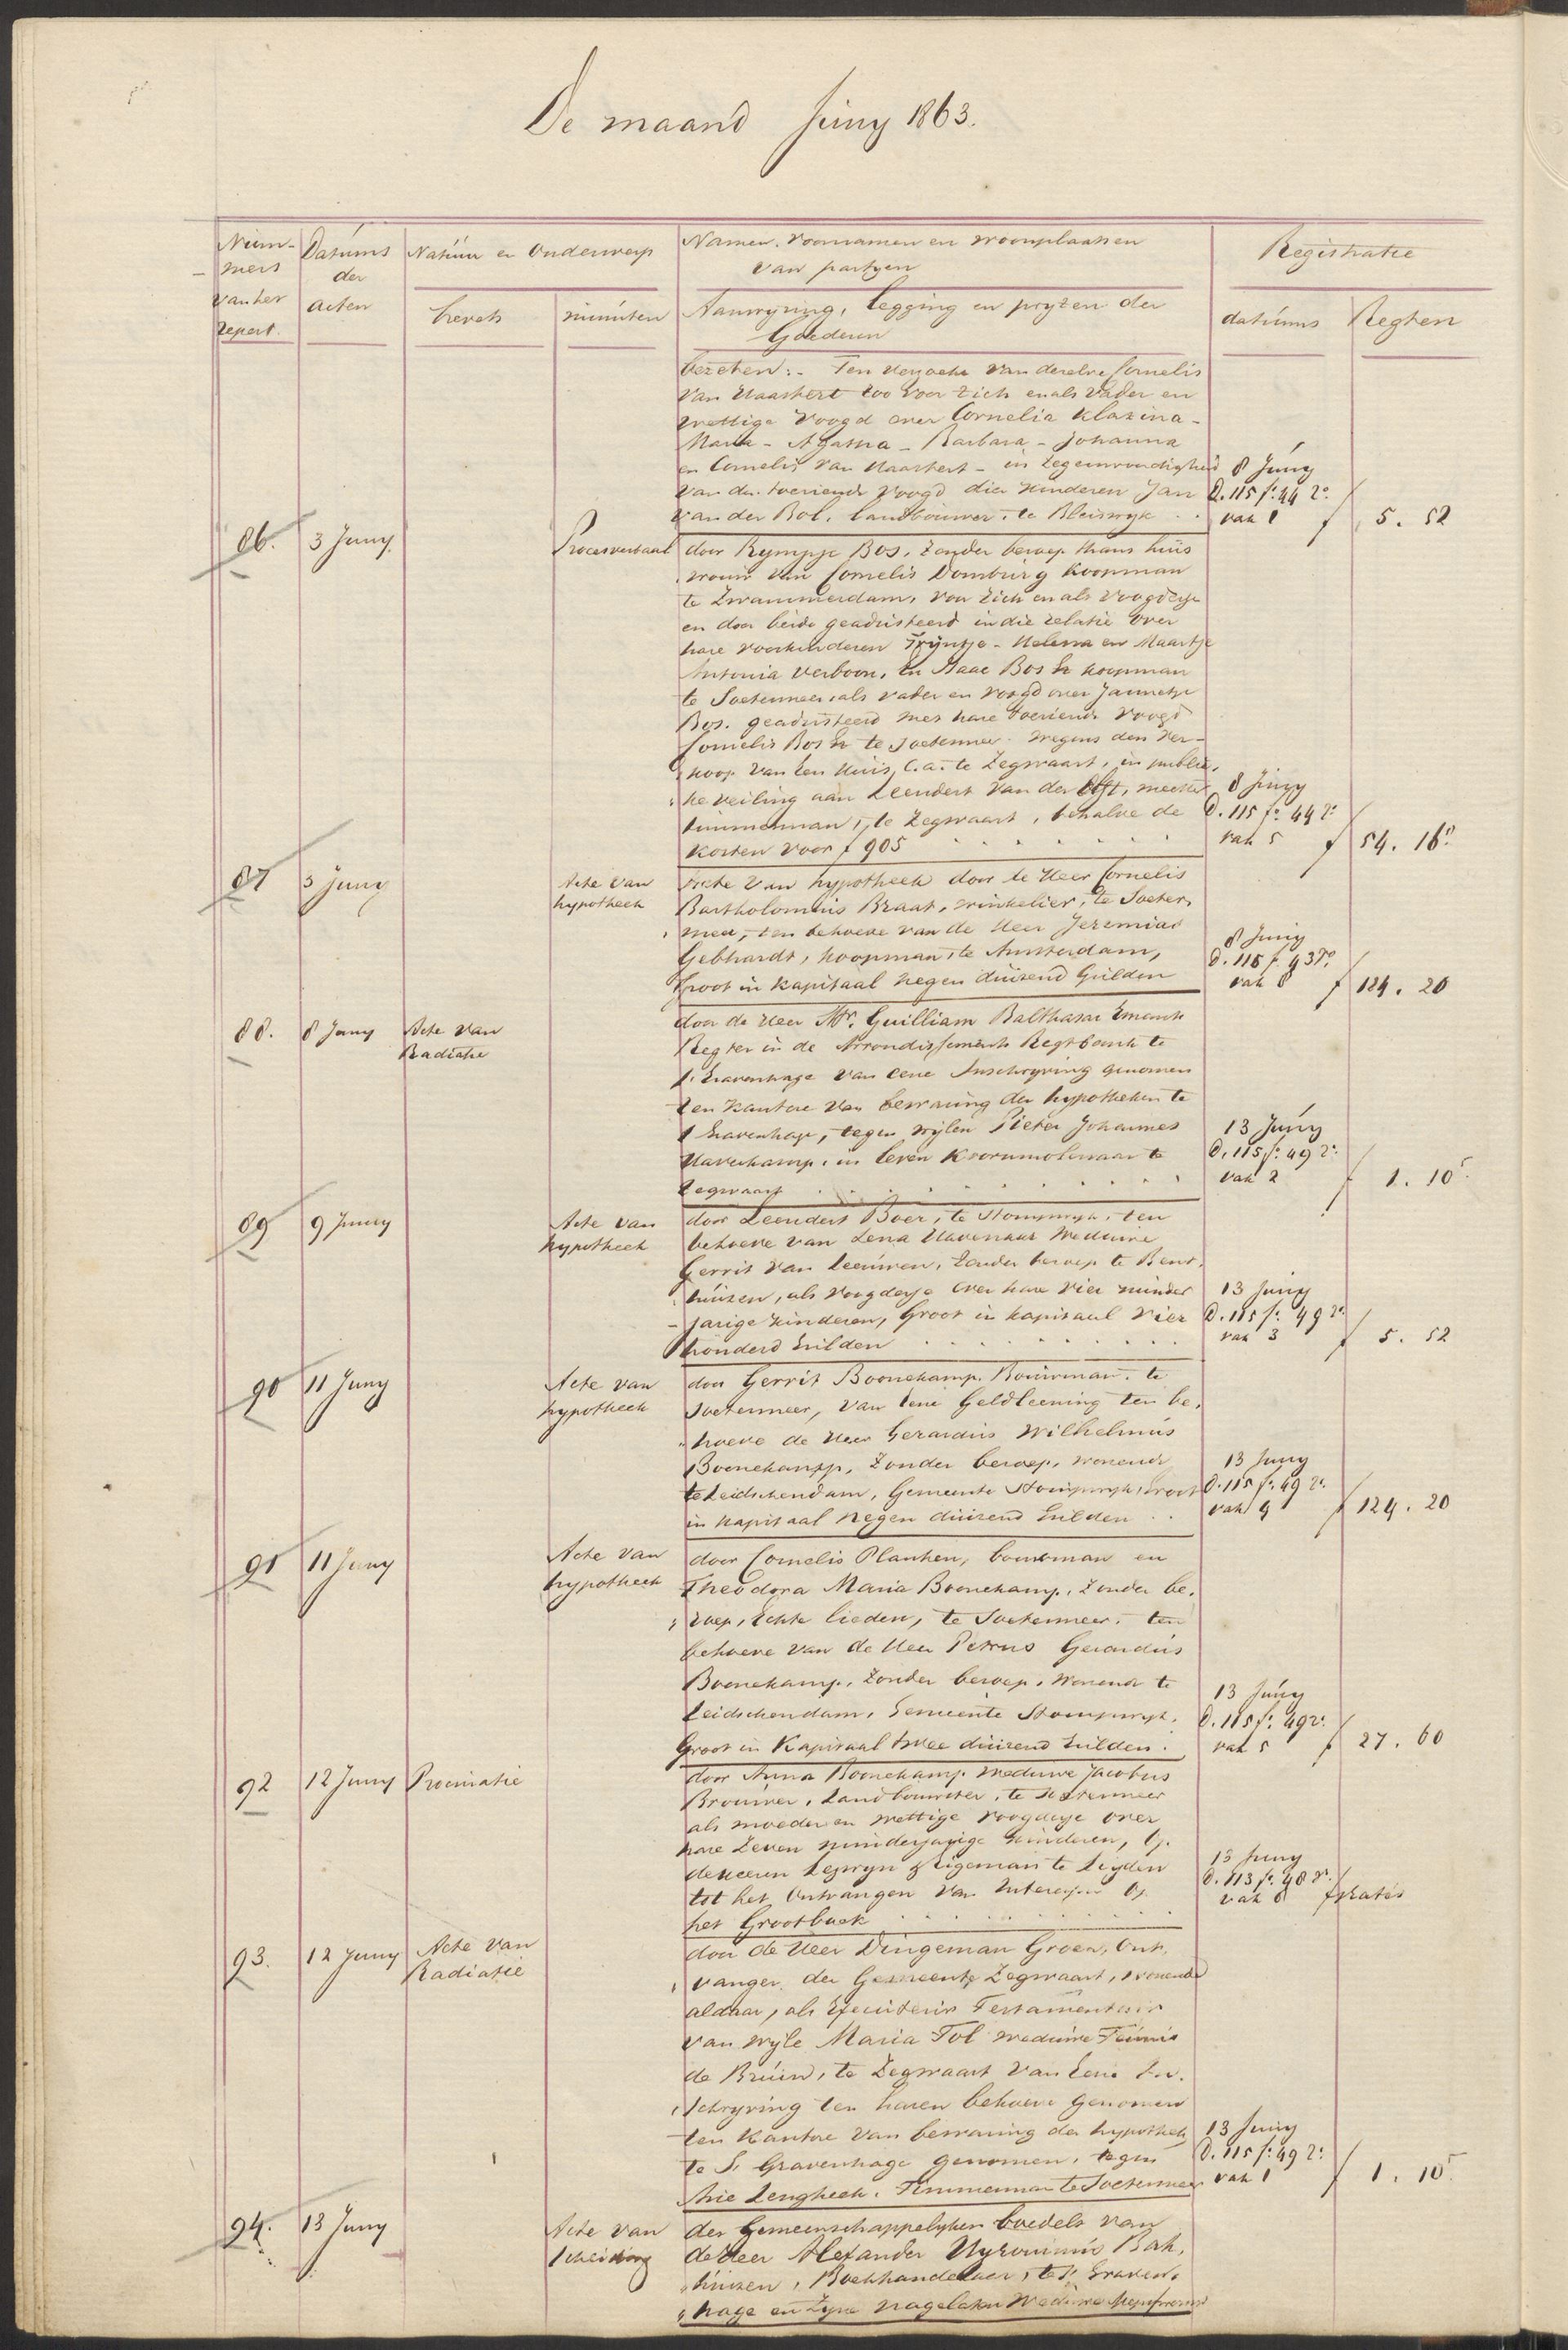 De maand Juny 1863.
Num-
mers
van het
repert.
Datums
der
acten
Natuur en Onderwerp
brevets
minuten
Namen, voornamen en woonplaatsen
van partyen
Aanwyzing, legging en pryzen der
Goederen
Registratie
datums
Regten
bezeten:- Ten verzoeke van denzelve Cornelis
van Haastert zoo voor zich en als vader en
wettige voogd over Cornelia Klazina -
Maria - Agatha - Barbara - Johanna
en Cornelis van Haastert - in tegenwoordigheid
van den toeziende voogd dier kinderen Jan
van der Bol, landbouwer, te Bleiswyk . .
8 Juny
D. 115 f: 44 v:
vak 1
f 5. 52
86. 3 Juny.
Procesverbaal
door Rympje Bos, zonder beroep thans huis
vrouw van Cornelis Domburg koopman
te Zwammerdam, voor zich en als voogdesse
en door beide geadsisteerd in die relatie over
hare voorkinderen Tryntje - Helena en Maartje
Antonia Verboon, en Isaac Bos Iz koopman
te Soetermeer, als vader en voogd over Jannetje
Bos. geadsisteerd met hare toeziende voogd
Cornelis Bos Iz te Soetermeer. wegens den ver-
koop van een Huis c.a. te Zegwaart, in publie,
ke veiling aan Leendert van der Elst, meester
timmerman, te Zegwaart, behalve de
kosten voor f 905 . . . . . .
8 Juny
D. 115 f: 44 v:
vak 5
f 54. 16⁵
87 3 Juny
Acte van
hypotheek
Acte van hypotheek door de Heer Cornelis
Bartholomeus Braat, winkelier, te Soeter,
meer, ten behoeve van de Heer Jeremias
Gebhardt, koopman, te Amsterdam,
Groot in kapitaal negen duizend Gulden
8 Juny
D. 116 f. 93 v:
vak 8
f 124. 20
88. 8 Juny
Acte van
Radiatie
door de Heer Mr. Guilliam Balthasar Emants
Regter in de Arrondissements Regtbank te
s' Gravenhage van eene Inschryving genomen
ten kantore van bewaring der hypotheken te
s' Gravenhage, tegen wylen Pieter Johannes
Haverkamp, in leven Koornmolenaar te
Zegwaart . . . . . . . . .
13 Juny
D. 115 f: 49 v:
vak 2
f 1. 10⁵
89 9 Juny
Acte van
hypotheek
door Leendert Boer, te Stompwyk, ten
behoeve van Lena Havenaar Weduwe
Gerrit van Leeuwen, zonder beroep te Bent,
huizen, als voogdesse over hare vier minder
- jarige kinderen, Groot in kapitaal vier
honderd Gulden . . . . . .
13 Juny
D. 115 f: 49 v:
vak 3
f 5. 52
90 11 Juny
Acte van
hypotheek
door Gerrit Boonekamp, Bouwman, te
Soetermeer, van eene Geldleening ten be,
hoeve de Heer Gerardus Wilhelmus
Boonekamp, zonder beroep, wonende
te Leidschendam, Gemeente Stompwyk, Groot
in kapitaal negen duizend Gulden . .
13 Juny
D. 115 f: 49 v:
vak 4
f 124. 20
91 11 Juny
Acte van
hypotheek
door Cornelis Planken, bouwman en
Theodora Maria Boonekamp, zonder be,
roep, Echte lieden, te Soetermeer, ten
behoeve van de Heer Petrus Gerardus
Boonekamp, zonder beroep, wonende te
Leidschendam, Gemeente Stompwyk,
Groot in Kapitaal twee duizend Gulden .
13 Juny
D. 115 f: 49 v:
vak 5
f 27. 60
92 12 Juny Procuratie
door Anna Boonekamp weduwe Jacobus
Brouwer, Landbouwster, te Soetermeer
als moeder en wettige voogdesse over
hare zeven minderjarige kinderen, Op
de Heeren Lezwyn & Eigeman te Leyden
tot het Ontvangen van Interessen Op
het Grootboek . . . . . . .
13 Juny
D. 113 f: 48 v:
vak 8
gratis
93. 12 Juny
Acte van
Radiatie
door de Heer Dingeman Groen, Ont,
vanger der Gemeente Zegwaart, wonende
aldaar, als Executeur Testamentair
van wyle Maria Tol weduwe Teunis
de Bruin, te Zegwaart van Eene In,
schryving ten haren behoeve genomen
ten Kantore van bewaring der hypothek
te S' Gravenhage genomen, tegen
Arie Lengkeek. Timmerman te Soetermeer
13 Juny
D. 115 f: 49 v:
vak 1
f 1. 10⁵
94. 13 Juny
Acte van
scheiding
der Gemeenschappelyken boedels van
de Heer Alexander Hyronimus Bak,
huizen, Boekhandelaar, te s' Graven,
hage en Zyne nagelaten Weduwe Mejufvrouw